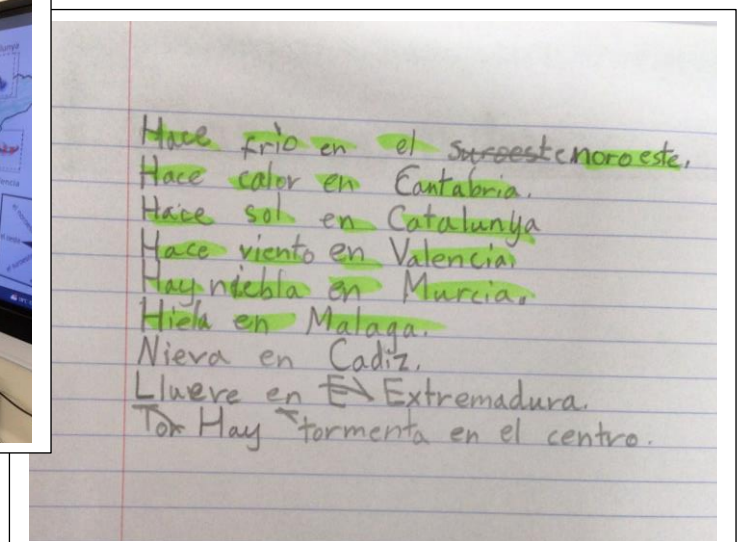 Hace frio en el suroeste noroeste.
Hace calor en Cantabria.
Hace sol en Catalunya
Hace viento en Valencia.
Hay niebla en Murcia.
Hiela en Malaga.
Nieva en Cadiz.
Llueve en E Extremadura.
Tor Hay tormenta en el centro.